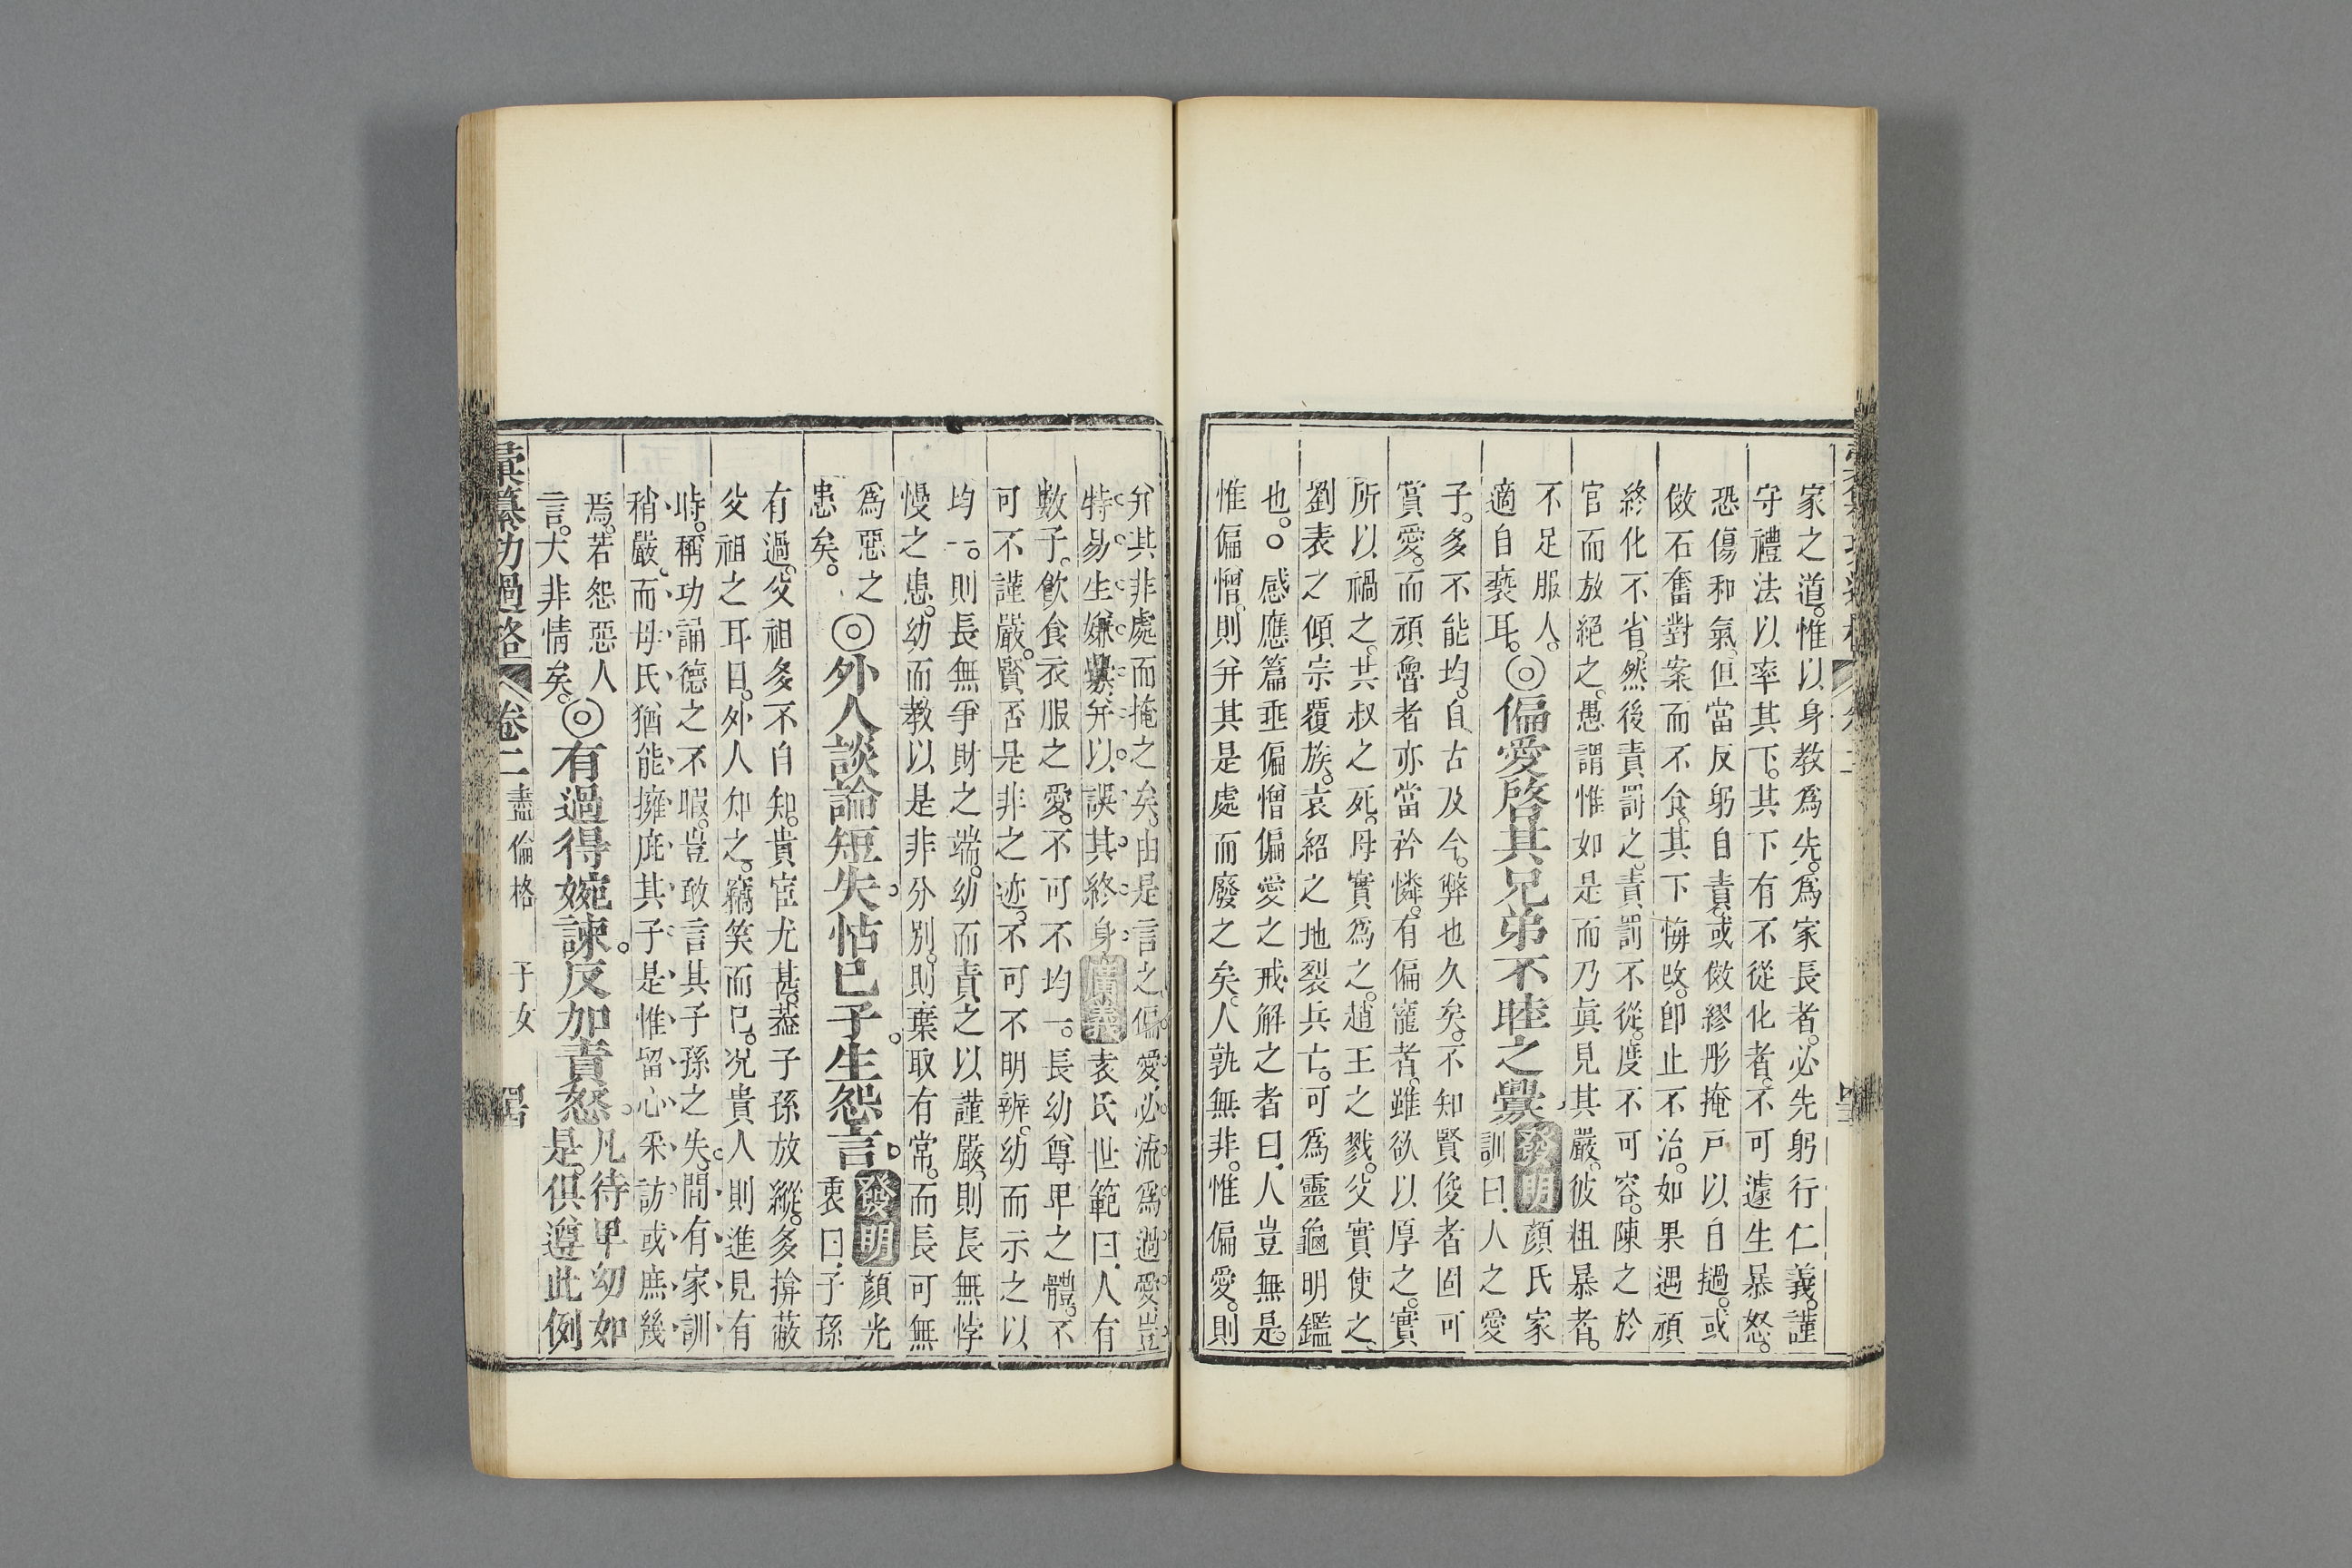 家之道。惟以身教爲先。爲家長者。必先躬行仁義。謹
守禮法以率其下。其下有不從化者。不可遽生暴怒。
恐傷和氣。但當反躬自責。或倣繆彤掩戸以自撾。或
倣石奮對案而不食。其下悔改。卽止不治。如果遇頑
終化不省。然後責罰之。責罰不從。度不可容。陳之於
官而放絕之。愚謂惟如是而乃眞見其嚴。彼粗暴者。
不足服人。
適自褻耳。
◎偏愛啓其兄弟不睦之釁
發明
顏氏家
訓曰、人之愛
子。多不能均。自古及今。弊也久矣。不知賢俊者固可
賞愛。而頑魯者亦當矜憐。有偏寵者。雖欲以厚之。實
所以禍之。共叔之死。母實爲之。趙王之戮。父實使之
劉表之傾宗覆族。袁紹之地裂兵亡。可爲靈龜明鑑
也。○感應篇垂偏憎偏愛之戒。解之者曰、人豈無是。
惟偏憎。則弁其是處而廢之矣。人孰無非。惟偏愛。則
弁其非處而掩之矣。由是言之。偏愛必流爲過愛。豈
特易生嫌釁。弁以誤其終身。廣義袁氏世範曰、人有
數子。飮食衣服之愛。不可不均一。長幼尊卑之體。不
可不謹嚴。賢否是非之迹。不可不明辨。幼而示之以
均一。則長無爭財之端。幼而責之以謹嚴。則長無悖
慢之患。幼而教以是非分別。則棄取有常。而長可無
爲惡之
患矣。
◎外人談論短失。怙已子。生怨言。
發明顏光
衷曰、子孫
有過。父祖多不自知。貴宦尤甚。葢子孫放縱。多揜蔽
父祖之耳目。外人知之。竊笑而已。况貴人則進見有
時。稱功誦德之不暇。豈敢言其子孫之失。間有家訓
稍嚴。而母氏猶能擁庇其子。是惟留心采訪或庶幾
焉。若怨惡人
言。大非情矣。
◎有過得婉諫。反加責怒。
凡待卑幼如
是。俱遵此例
彙纂功過格
卷二
盡倫格
子女